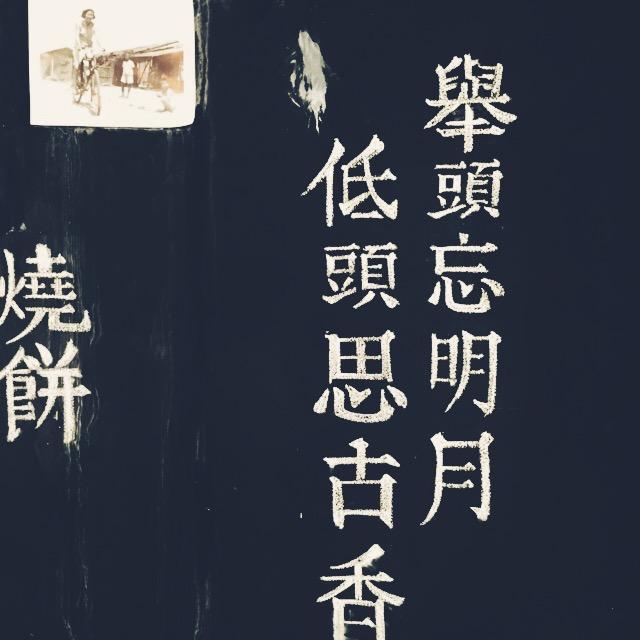 舉頭忘明月
低頭思古香
燒餅